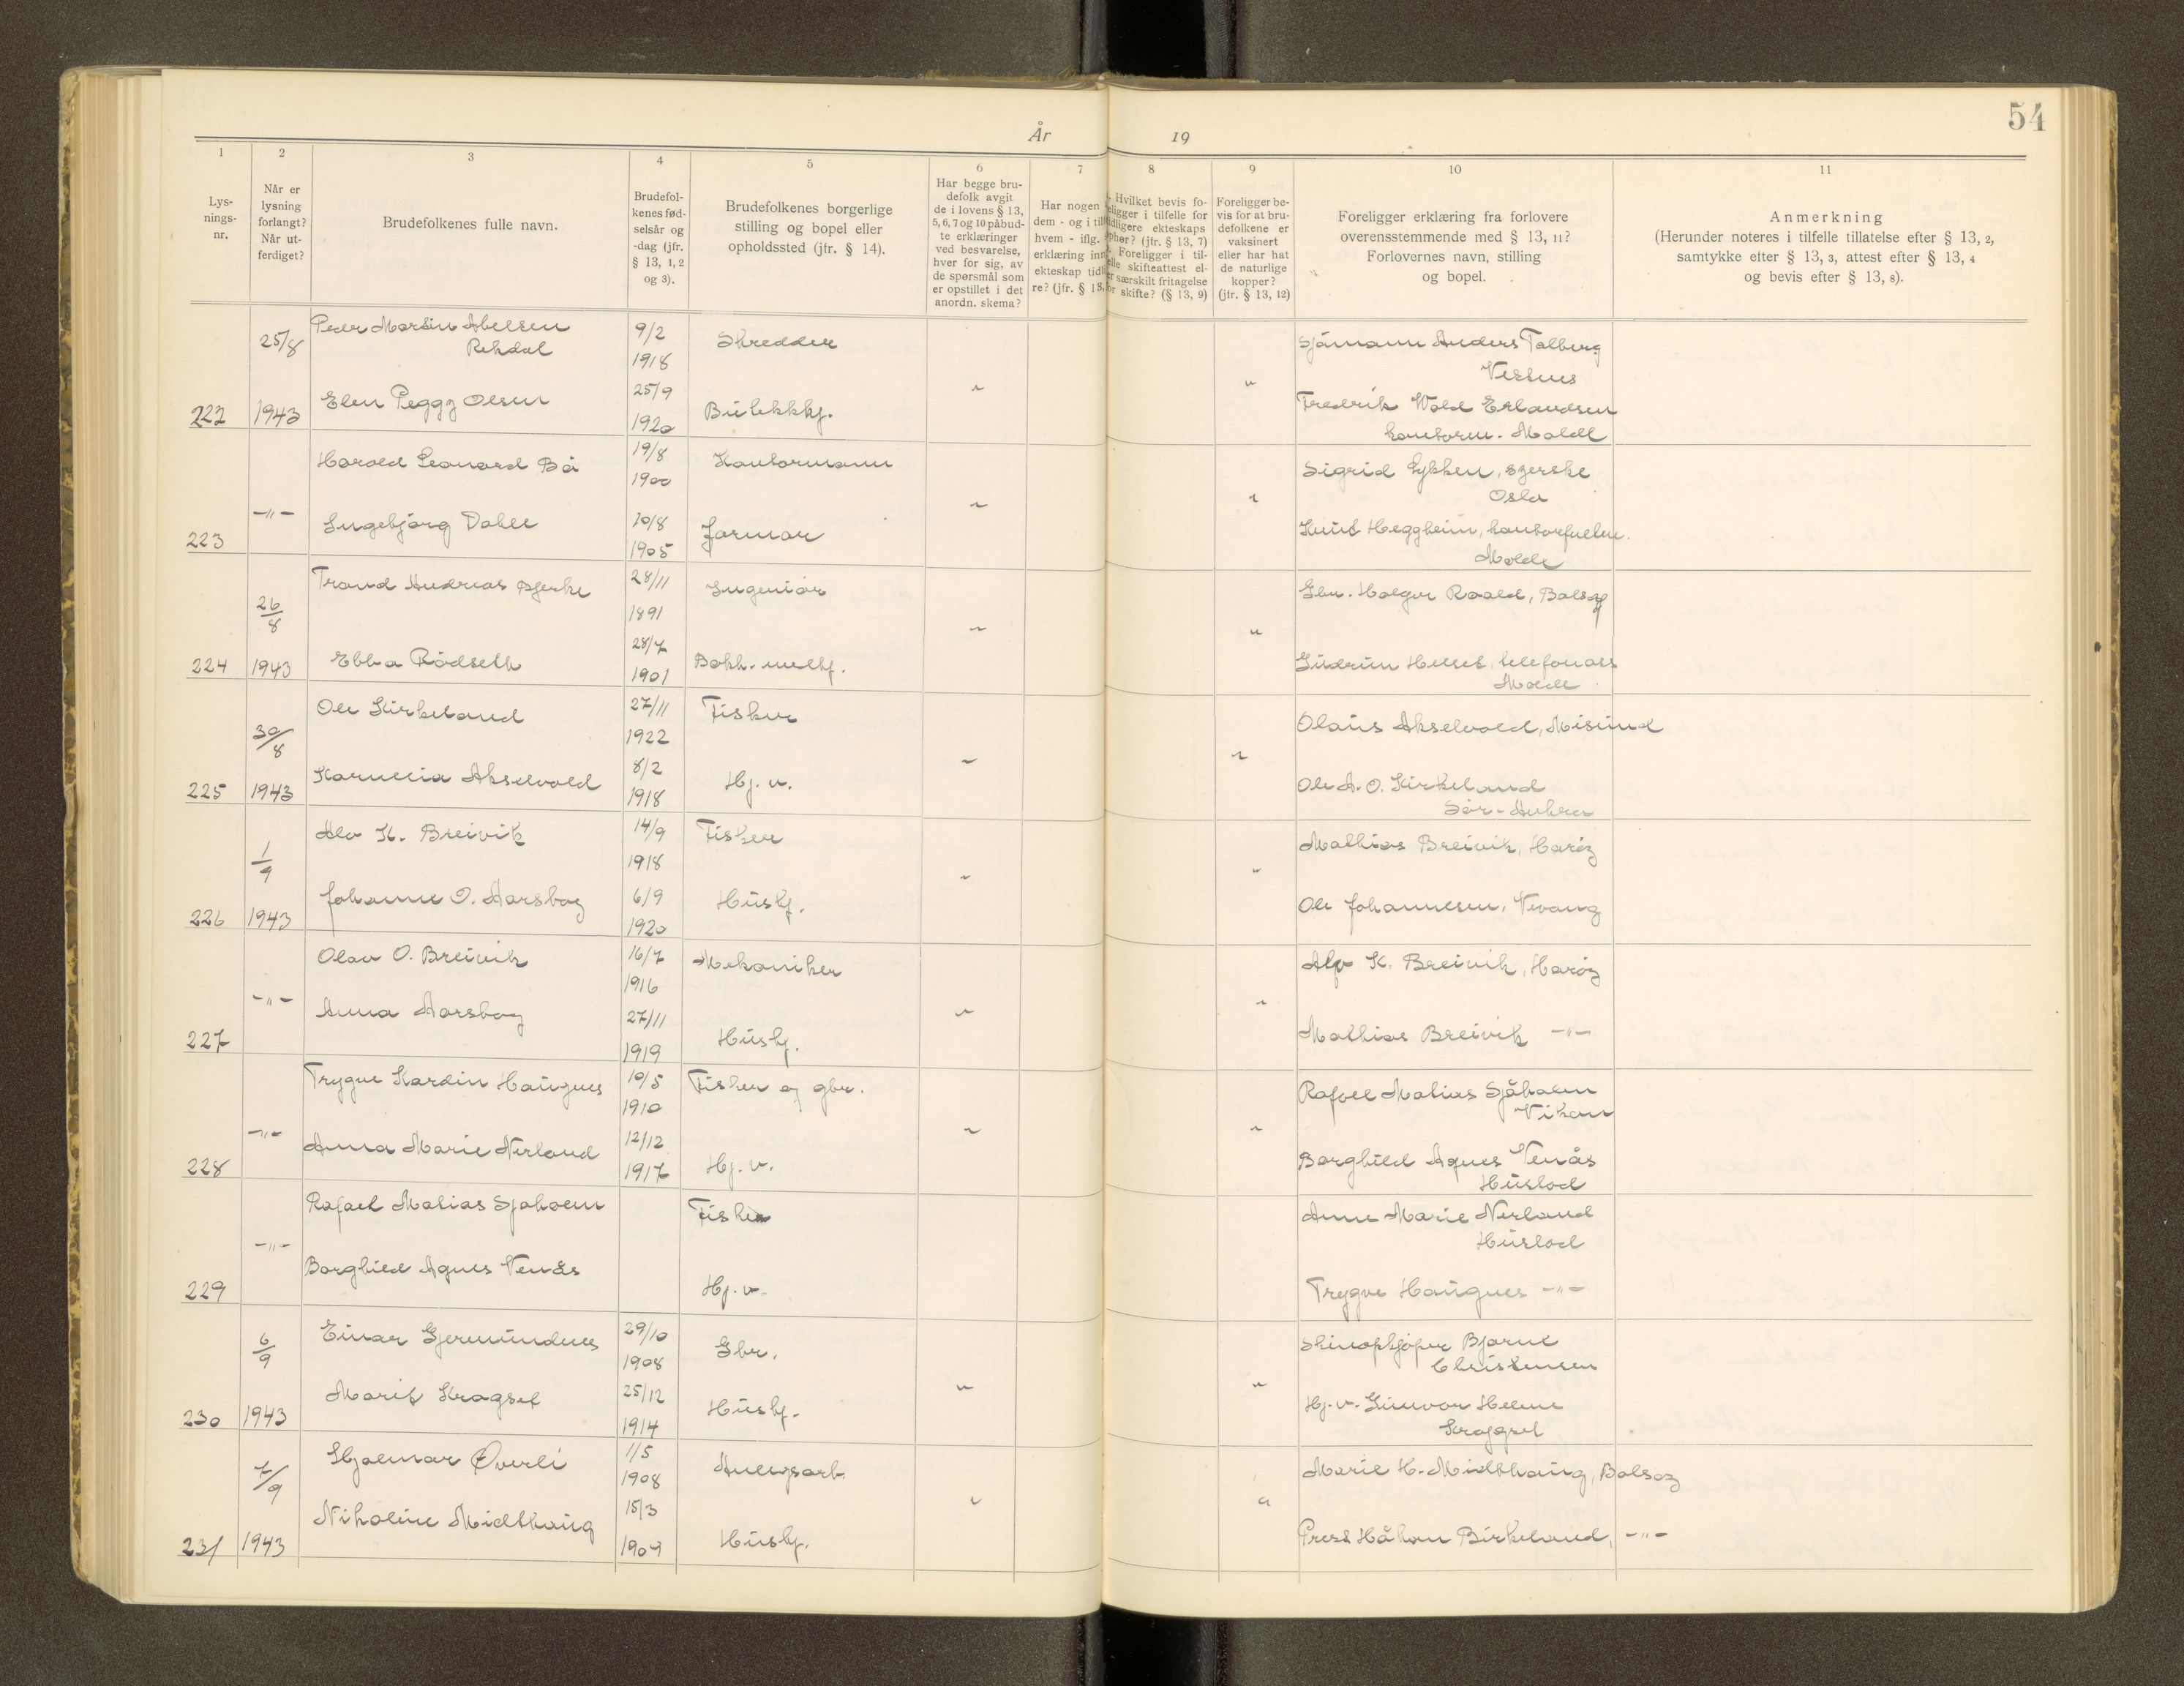 54
År 19
1 2 3 4 5 6 7 8 9 10 11
Lys-
nings-
nr.
Når er
lysning
forlangt?
Når ut-
ferdiget?
Brudefolkenes fulle navn.
Brudefol-
kenes fød-
selsår og
-dag (jfr.
§ 13, 1, 2
og 3).
Brudefolkenes borgerlige
stilling og bopel eller
opholdssted (jfr. § 14).
Har begge bru-
defolk avgit
de i lovens § 13,
5, 6, 7 og 10 påbud-
te erklæringer
ved besvarelse,
hver for sig, av
de spørsmål som
er opstillet i det
anordn. skema?
Har nogen
dem - og i til
hvem - iflg.
erklæring inn
ekteskap tidl
re? (jfr. § 13,
Hvilket bevis fo-
religger i tilfelle for
tidligere ekteskaps
ophør? (jfr. § 13, 7)
Foreligger i til-
elle skifteattest el-
er særskilt fritagelse
for skifte? (§ 13, 9)
Foreligger be-
vis for at bru-
defolkene er
vaksinert
eller har hat
de naturlige
kopper?
(jfr. § 13, 12)
Foreligger erklæring fra forlovere
overensstemmende med § 13, 11?
Forlovernes navn, stilling
og bopel.
Anmerkning
(Herunder noteres i tilfelle tillatelse efter § 13, 2,
samtykke efter § 13, 3, attest efter § 13, 4
og bevis efter § 13, 8).
25/8 Peder Martin Abelsen 9/2 Skredder Sjåmann Anders Talberg
Rekdal 1918 Vestnes
Elen Peggy Olsen 25/9 " " Fredrik Wold Erlandsen
222 1943 1920 Butekkhj. kontorm. Molde
Harald Leonard Bå 19/8 Kontormann Sigrid Lykken, syerske
1900 Oslo
-"- Ingebjørg Dahle 10/8 Jormor " " Knut Heggheim, kontorfullm.
223 1905 Molde
Trond Andreas Bjerke 28/11 Ingeniør Gbr. Holger Roald, Bolsøy
26/8 1891
28/7 " "
224 1943 Ebba Rødseth 1901 Bokh. medhj. Gudrun Helset, telefonass
Molde
Ole Kirkeland 27/11 Fisker Olaus Akselvold, Misund
30/8 1922
8/2 " "
225 1943 Kornelia Akselvold 1918 Hj. v. Ole A. O. Kirkeland
Sør-Aukra
Alv K. Breivik 14/9 Fisker Mathias Breivik, Harøy
1/9 1918
Johanne O. Aarsbog 6/9 Hushj. " " Ole Johannesen, Vevang
226 1943 1920
Olav O. Breivik 16/7 Mekaniker Alv K. Breivik, Harøy
1916
-"- Anna Aarsbog 27/11 " " Mathias Breivik -"-
227 1919 Hushj.
Trygve Kardin Haugnes 10/5 Fisker og gbr. Rafael Matias Sjåholm
1910 Vikan
-"- Anna Marie Nerland 12/12 " " Borghild Agnes Venås
228 1917 Hj. v. Hustad
Rafael Matias Sjaholm Fisker Anne Marie Nerland
-"- Hustad
Borghild Agnes Venås
229 Hj. v. Trygve Haugnes -"-
Einar Gjermundnes 29/10 Gbr. Skinopkjøper Bjarne
6/9 1908 Christensen
Marit Kragset 25/12 Hushj. " " Hj. v. Gunvor Helene
230 1943 1914 Kragset
Hjalmar Øverli 1/5 Anlegsarb. Marie H. Midthaug, Bolsøy
7/9 1908
Nikoline Midthaug 15/3 " "
231 1943 1904 Hushj. Prest Håkon Birkeland, -"-